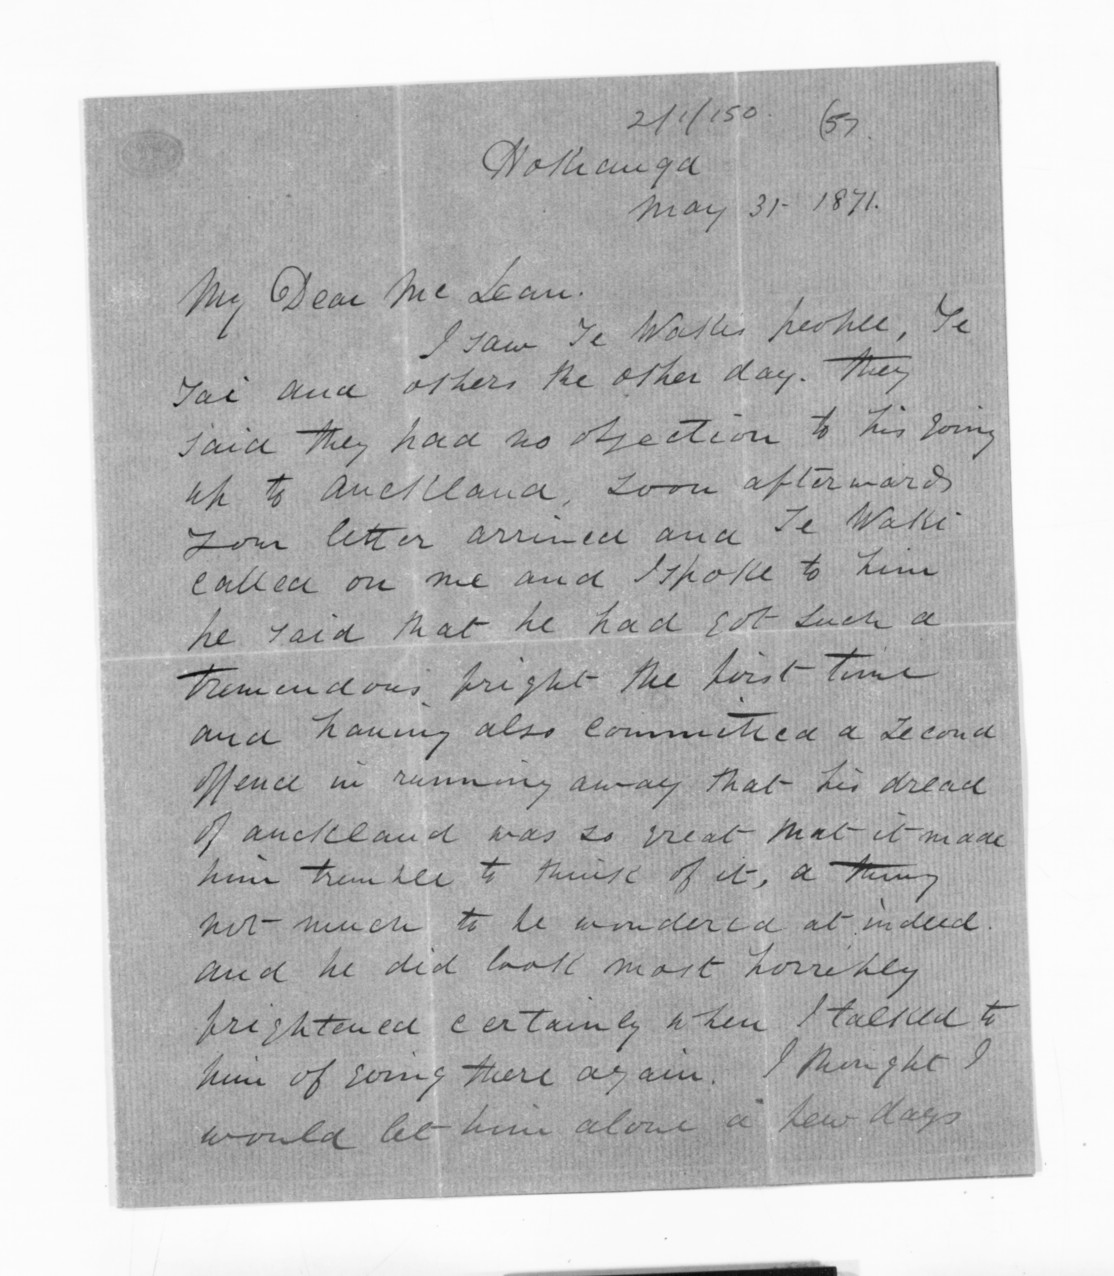 2/1/150. (57.
Hokianga
May 31- 1871.
My Dear Mc Lean.
I saw Te Wakis people, Te
Tai and others the other day. they
said they had no objection to his going
up to Auckland, soon afterwards
your letter arrived and Te Waki
called on me and I spoke to him
he said that he had got such a
tremendous fright the first time
and having also committed a second
offence in running away that his dread
of auckland was so great that it made
him tremble to think of it, a thing
not much to be wondered at indeed.
and he did look most horribly
frightened certainly when I talked to
him of going there again. I thought I
would let him alone a few days